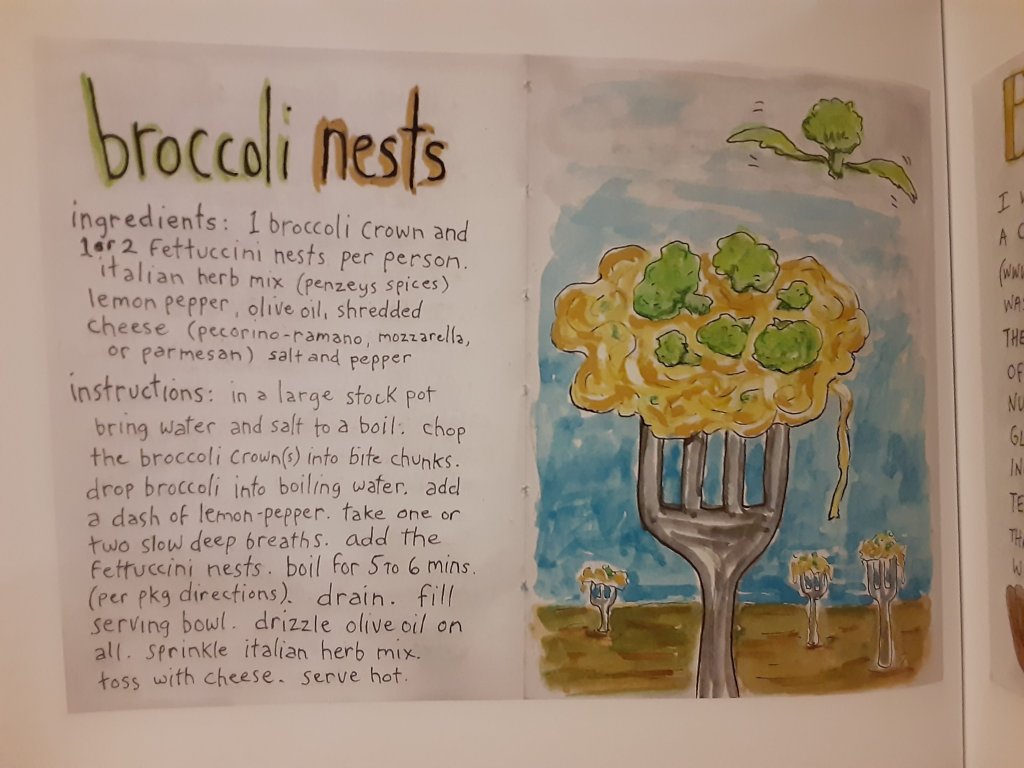 broccoli nests
ingredients: 1 broccoli crown and
1 or 2 fettuccini nests per person.
italian herb mix (penzeys spices)
lemon pepper, olive oil, shredded
cheese (pecorino-ramano, mozzarella,
or parmesan) salt and pepper
instructions: in a large stock pot
bring water and salt to a boil. chop
the broccoli crown(s) into bite chunks.
drop broccoli into boiling water. add
a dash of lemon-pepper. take one or
two slow deep breaths. add the
fettuccini nests. boil for 5 to 6 mins.
(per pkg directions). drain. fill
serving bowl. drizzle olive oil on
all. sprinkle italian herb mix.
toss with cheese. serve hot.
I
A